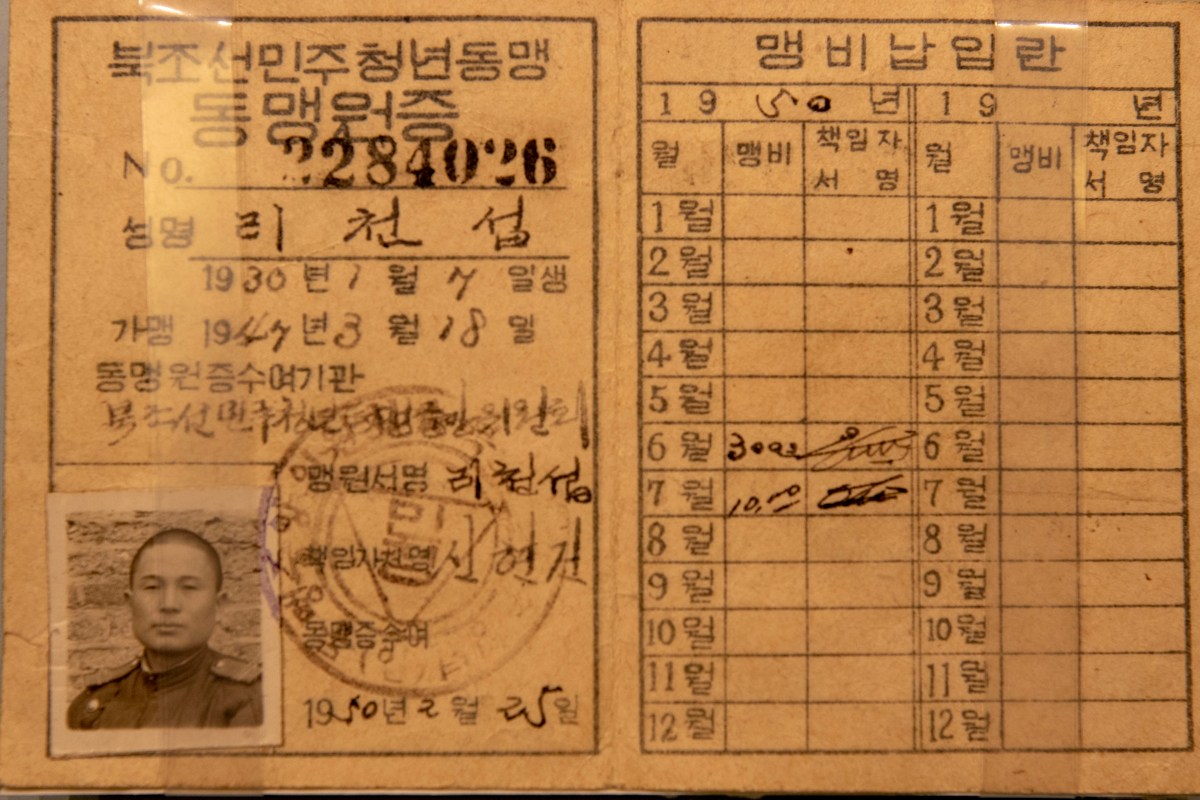 북조선민주청년동맹
동맹원증
No. 2284026
성명 리천섭
1930년 1월 7일생
가맹 1947년 3월 18일
동맹원증수여기관
북조선민주청년동맹중앙위원회
맹원서명 리천섭
책임자친명 신현진
동맹증수여
1950년 2월 25일
민
맹비납입란
1950년 19 년
월 맹비 책임자서명 월 맹비 책임자서명
1월 1월
2월 2월
3월 3월
4월 4월
5월 5월
6월 6월
7월 7월
8월 8월
9월 9월
10월 10월
11월 11월
12월 12월